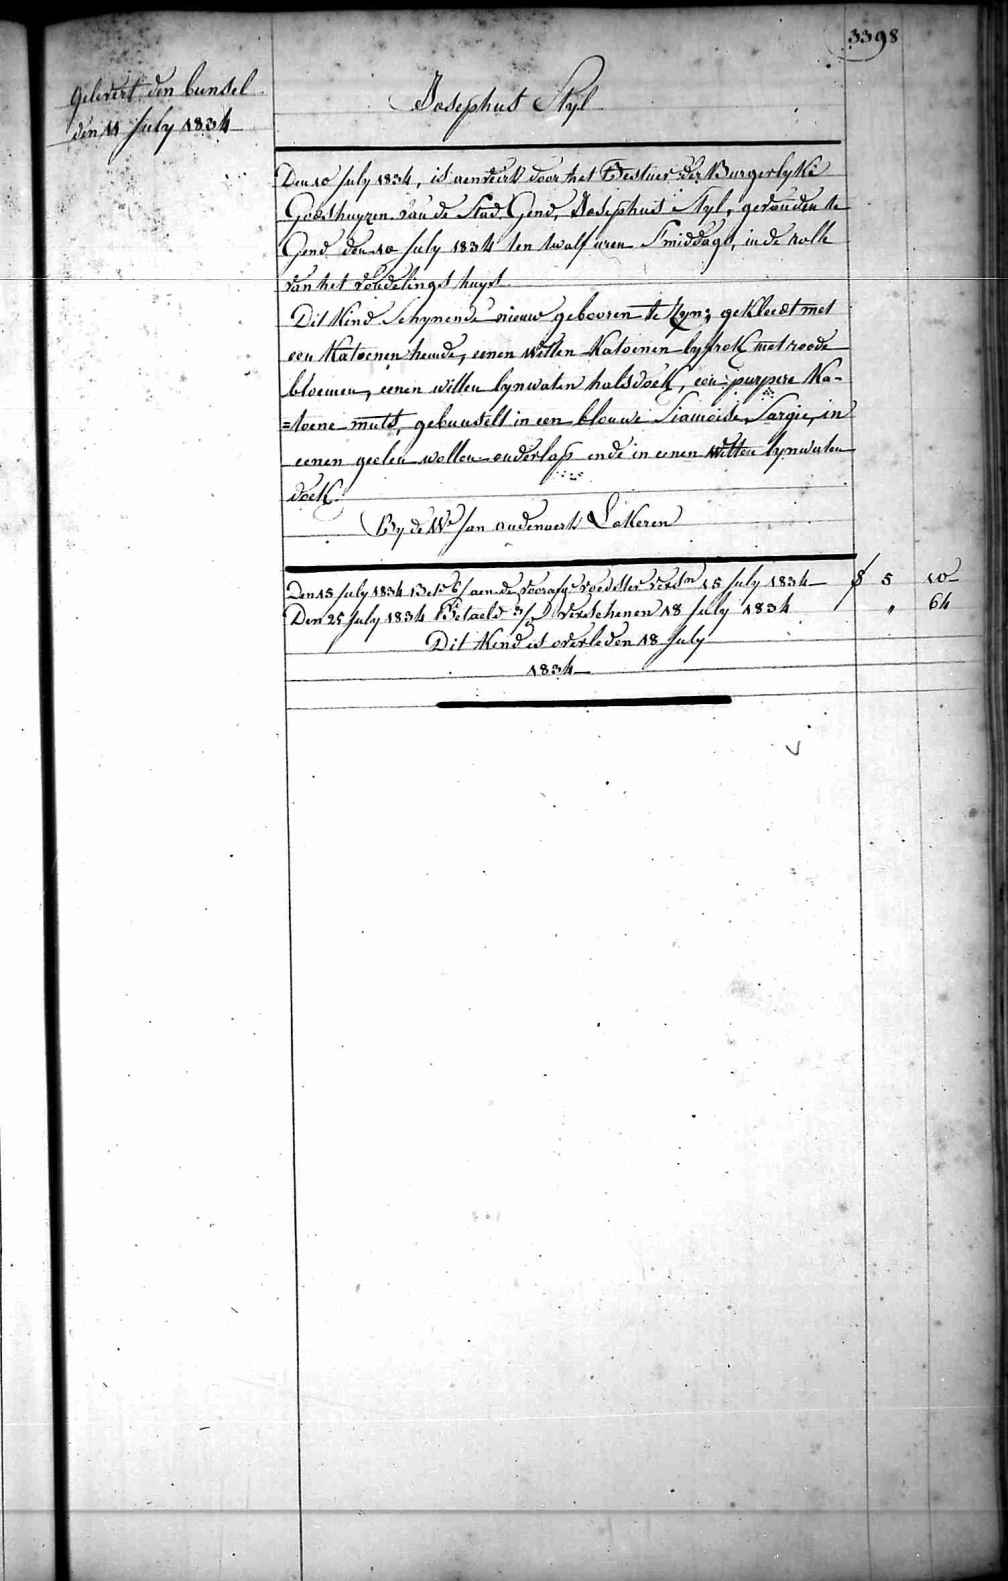 3398
Gelevert den bunsel
den 11 July 1834
Josephus Styl
Den 10 July 1834, is aenveirt door het Bestier der Burgerlyke
Godshuyzen van de Stad Gend, Josephus Styl, gevonden te
Gend den 10 July 1834 ten twalf uren Smiddags, in de rolle
van het vondelings huys
Dit Kind Schynende nieuw gebooren te Zyn; gekleedt met
een Katoenen hemde, eenen Witten Katoenen byfrok met roode
bloemen, eenen witten lynwaten halsdoek, een purpere Ka-
=toene muts, gebunselt in een blouwe Siamoise Sargie, in
eenen geelen wollen onderlap ende in eenen Witten lynwaten
doek.
By de We Jan oudenaert Lokeren
Den 15 July 1834 aen de voedster 15 July 1834 5 10
Den 25 July 1834 Betaeld 3/ Verschenen 18 July 1834 " 64
Dit Kind is overleden 18 July
1834